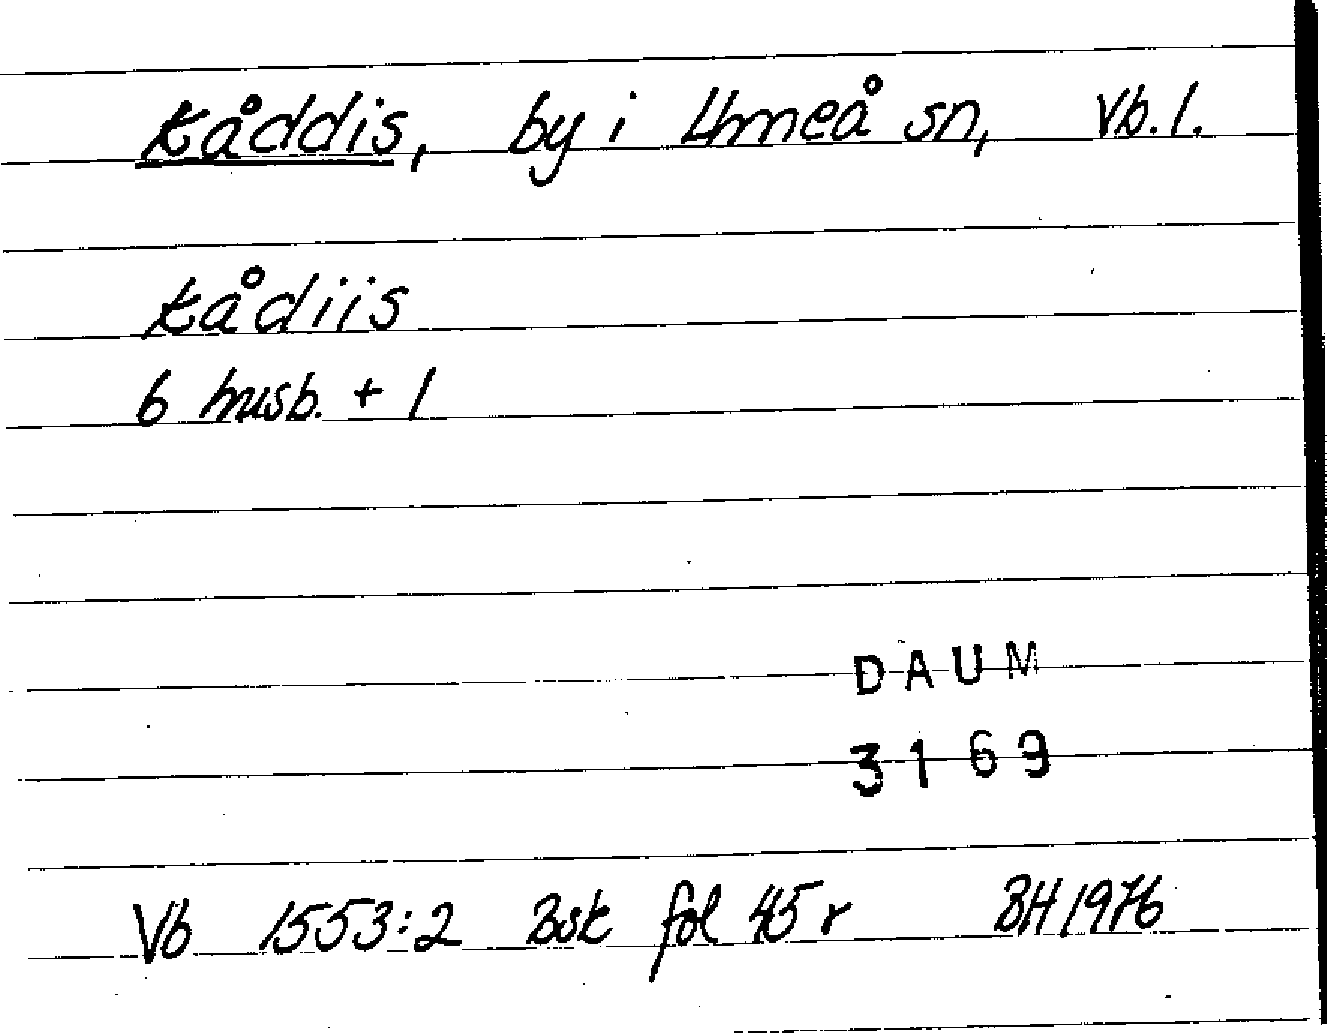 Kåddis, by i Umeå sn, Vb. l.
Kådiis
6 husb. + 1
DAUM
3169
Vb 1553:2 Bsk fol 45 r BH 1976